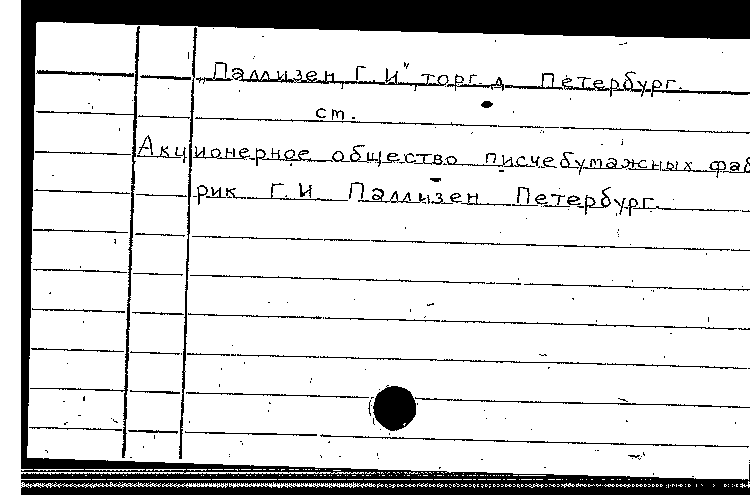 „Паллизен, Г. И." торг. д. Петербург.
ст.
Акционерное общество писчебумажных фаб
рик Г. И. Паллизен Петербург.